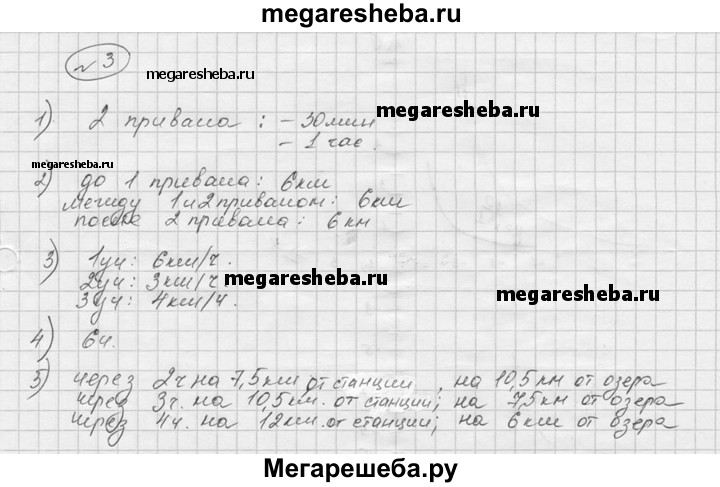 megaresheba.ru
№ 3
megaresheba.ru
1) 2 привала : - 30 мин
megaresheba.ru
- 1 час.
megaresheba.ru
2) до 1 привала: 6 км
между 1 и 2 привалом: 6 км
после 2 привала: 6 км
3) 1 уч: 6 км/ч.
2 уч: 3 км/ч
megaresheba.ru
megaresheba.ru
3 уч: 4 км/ч.
4) 6 ч.
5) через 2 ч на 7,5 км от станции, на 10,5 км от озера
через 3 ч. на 10,5 км. от станции; на 7,5 км от озера
через 4 ч. на 12 км. от станции; на 6 км от озера
Мегарешеба.ру